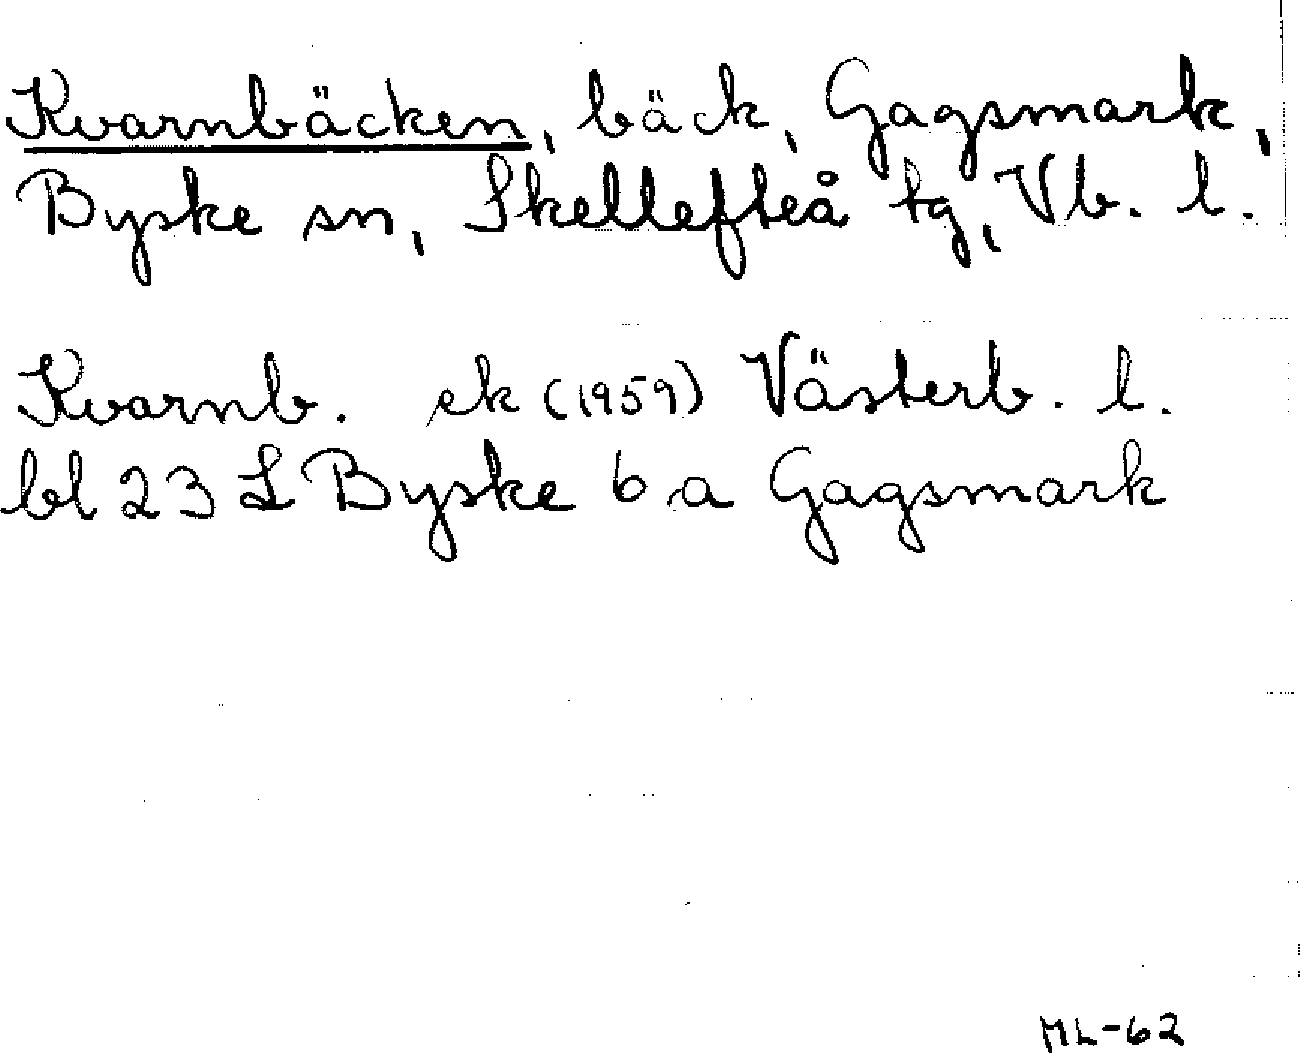 Kvarnbäcken, bäck, Gagsmark,
Byske sn, Skellefteå tg, Vb. l.
Kvarnb. ek (1959) Västerb. l.
bl 23 L Byske 6 a Gagsmark
ML-62